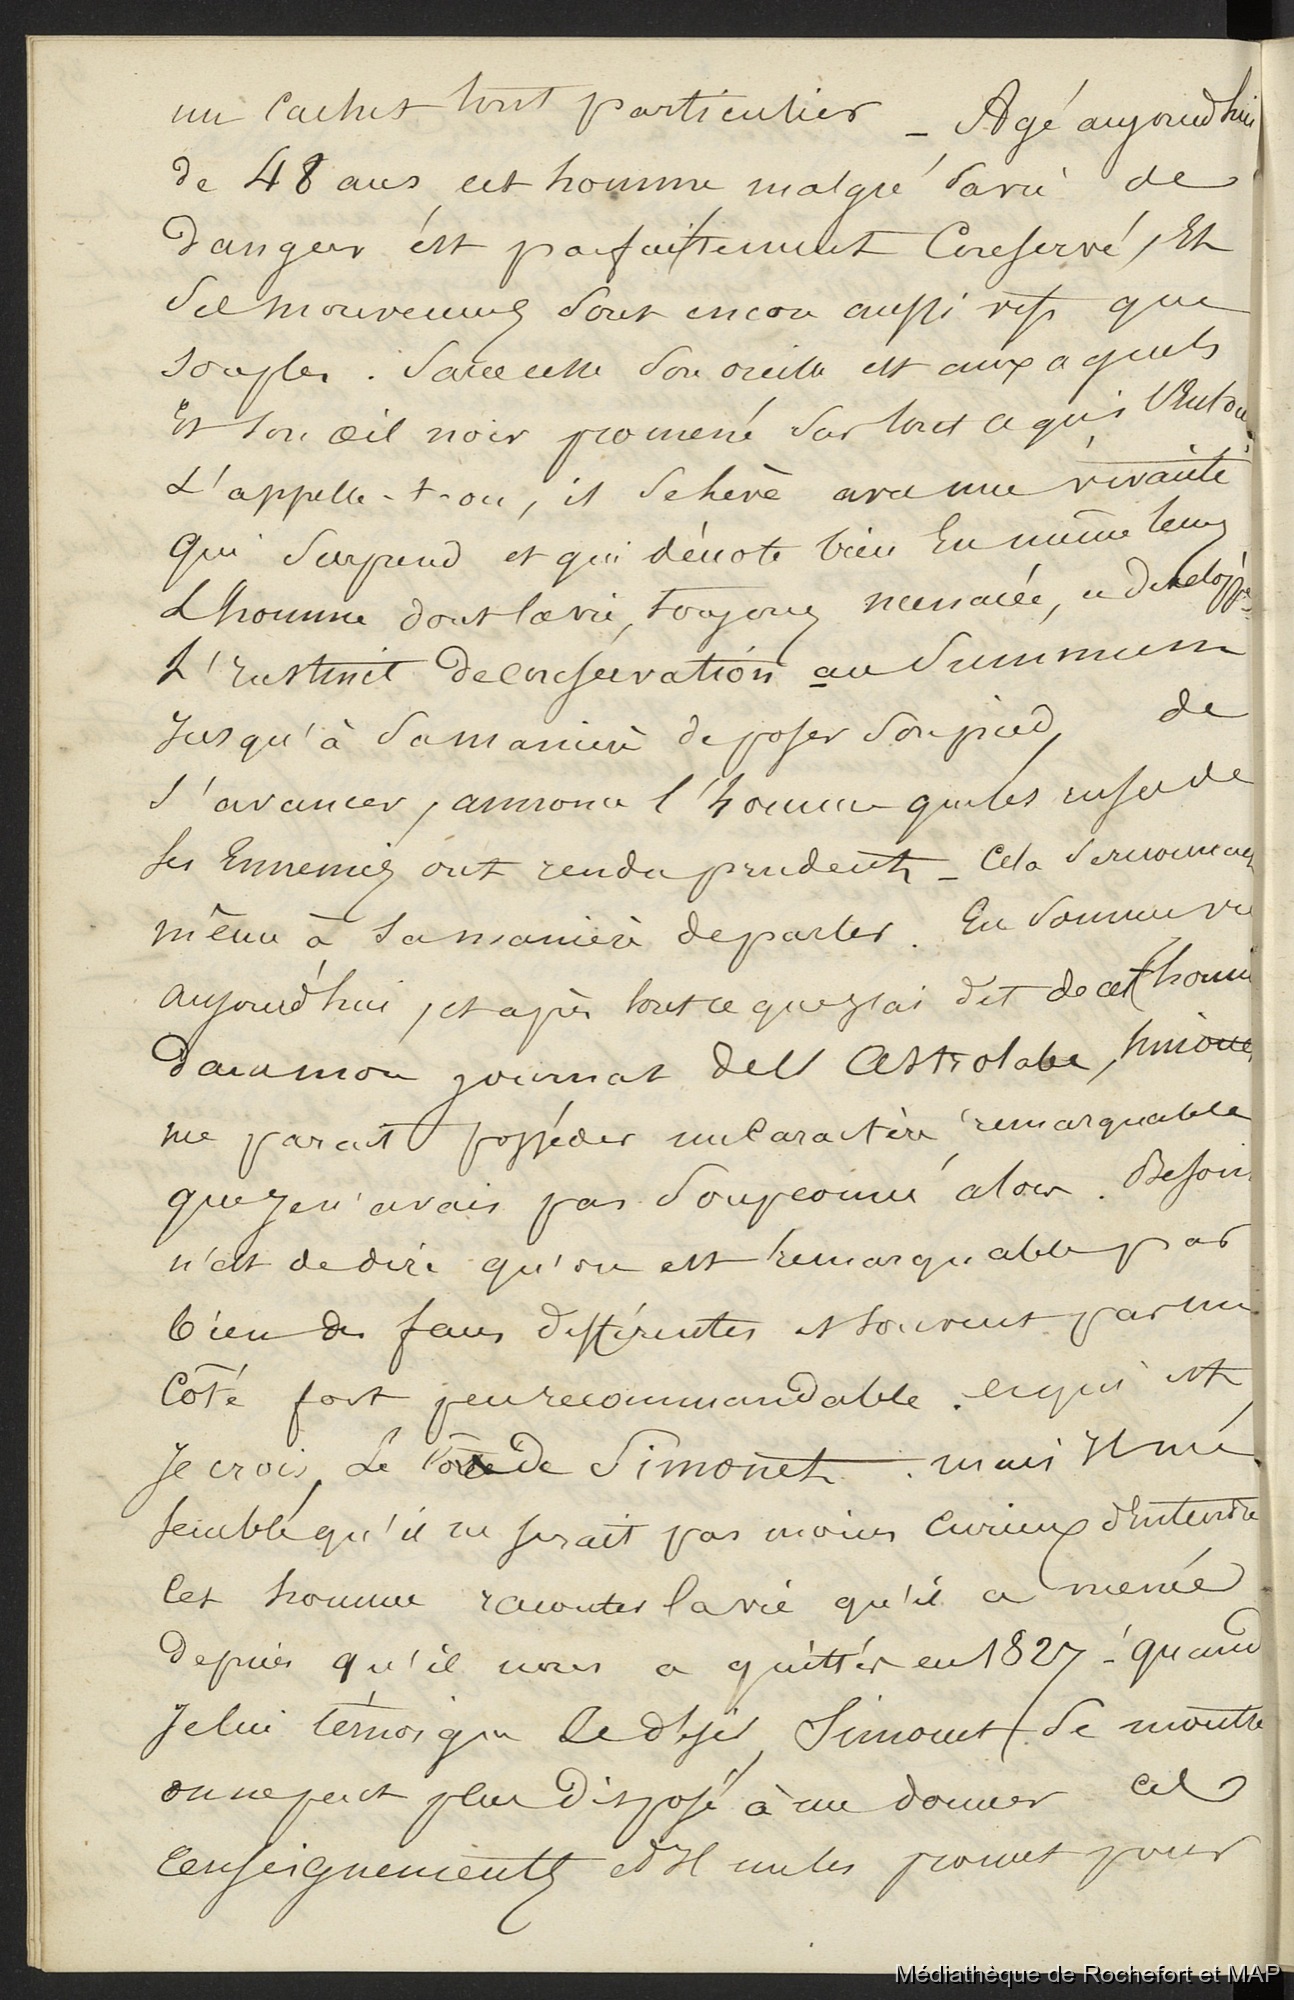 un cachet tout particulier _ Agé aujourd'hui
de 48 ans cet homme malgré sa vie de
danger ést parfaitement conservé, Et
Ses mouvemens sont encore aussi vifs que
souples. Sans cesse son oreille est aux aguets
Et son œil noir promené sur tout ce qui l'Entoure.
L'appelle-t-on, il se lève avec une vivaité
qui surprend et qui dénote bien En même tems
L'homme dont la vie, toujours menacée, a développé
L'instinct de conservation au Summum
Jusqu'à sa manière de poser son pied, de
s'avancer, annonce l'homme que les ruses de
ses Ennemis ont rendu prudent _ Cela se remarque
même à sa manière de parler. En somme vu
aujourd'hui, et après tout ce que j'ai dit de cet homme
dans mon journal de l'Astrolabe, Simonet
me parait posséder un caractère remarquable
que je n'avais pas soupconné alors. Besoin
n'est de dire qu'on est remarquable par
bien des faces différentes et souvent par un
côté fort peu recommandable. ce qui est,
Je crois, Le de Simonet. mais Il me
semble qu'il ne serait pas moins curieux d'Entendre
cet homme raconter la vie qu'il a menée
depuis qu'il nous a quittés en 1827 - quand
Je lui témoigne ce désir, Simonet se montre
on ne peut plus disposé à me donner ces
renseignements et Il me les promet pour
Médiathèque de Rochefort et MAP